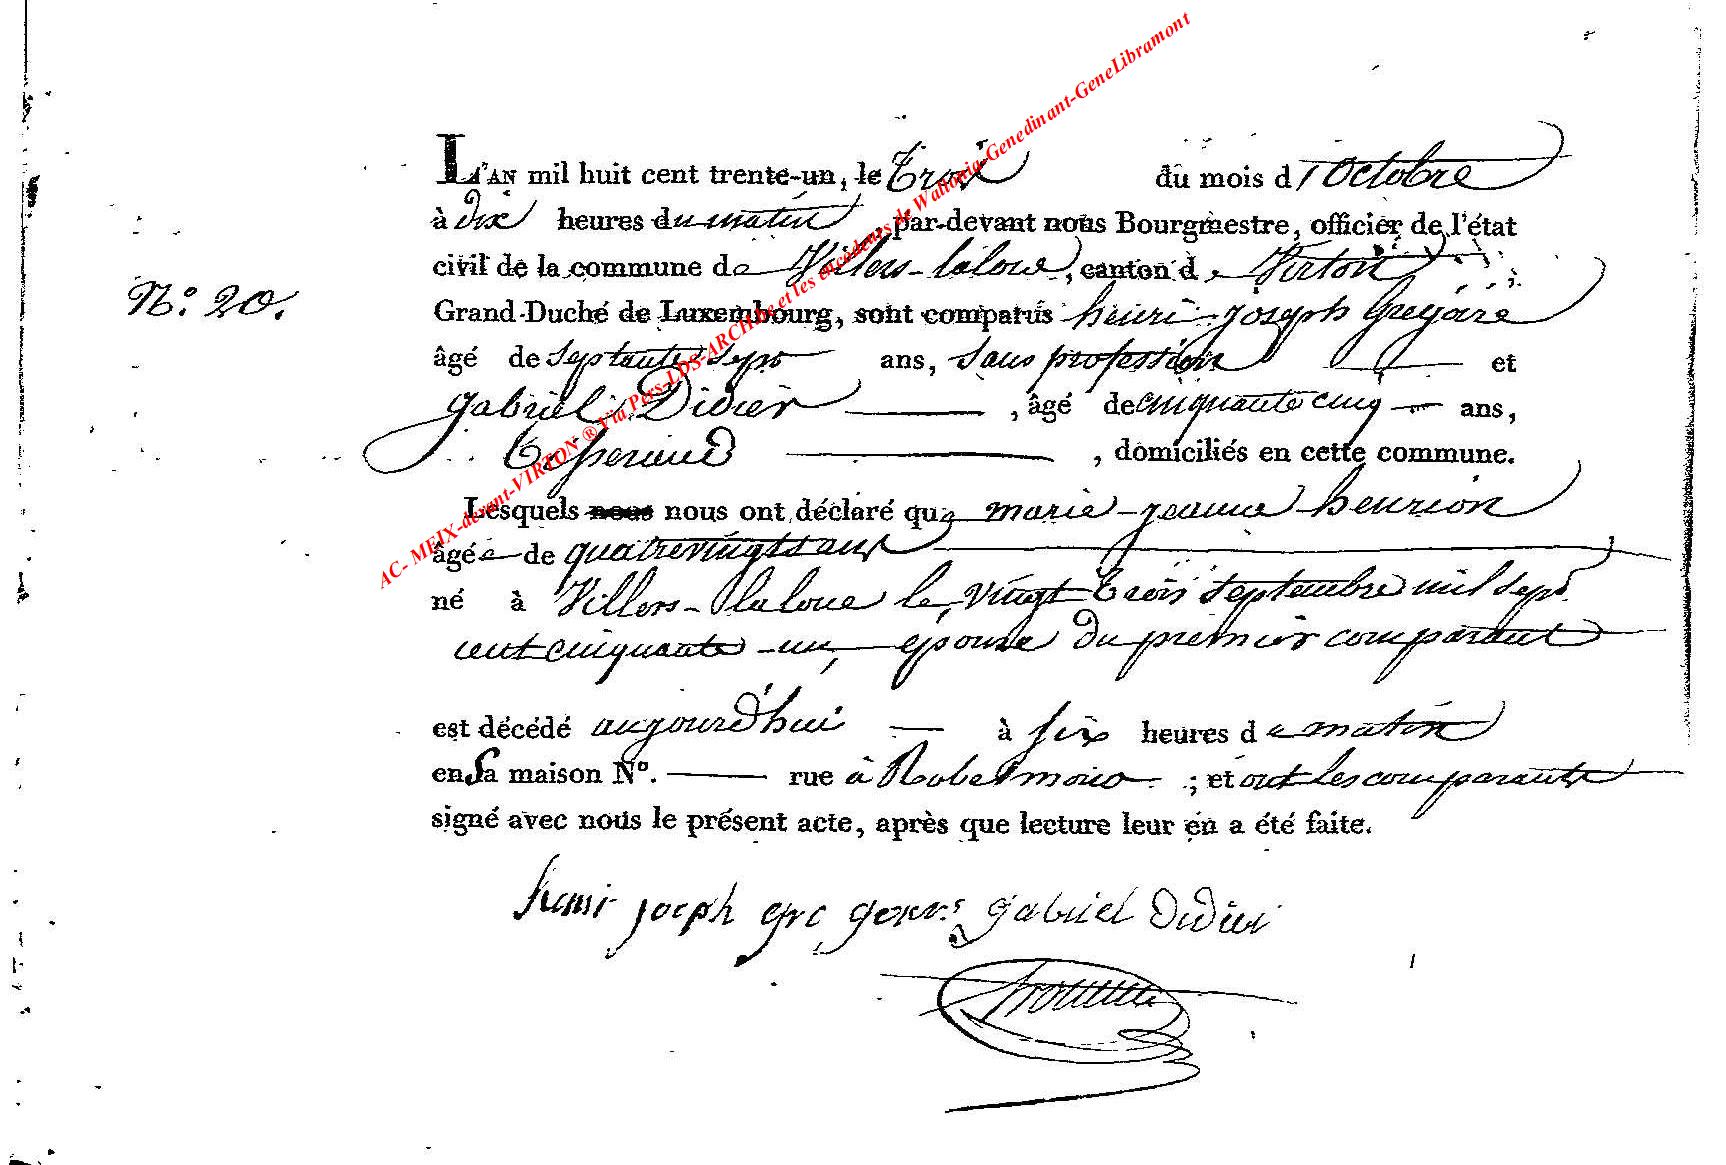 L'AN mil huit cent trente-un, le Trois du mois d'Octobre
à dix heures du matin par-devant nous Bourgmestre, officier de l'état
civil de la commune de Villers-laloue, canton de Virton,
N.º 20.
Grand-Duché de Luxembourg, sont comparus henri-joseph Gregoire
âgé de septante sept ans, sans profession et
gabriel Didier, âgé de cinquante cinq ans,
Tisserand, domiciliés en cette commune.
Lesquels nous nous ont déclaré que marie-jeanne henrion
âgée de quatrevingts ans
né à Villers-laloue le vingt trois septembre mil sept
cent cinquante-un, épouse du premier comparant
est décédé aujourd'hui à six heures du matin
en sa maison Nº. rue à ; et ont les comparants
signé avec nous le présent acte, après que lecture leur en a été faite.
henri joseph gre goire gabriel Didier
AC- MEIX-devant-VIRTON ® Via Pers-LDS-ARCH.be et les encodeurs de Wallonia-Genedinant-GeneLibramont